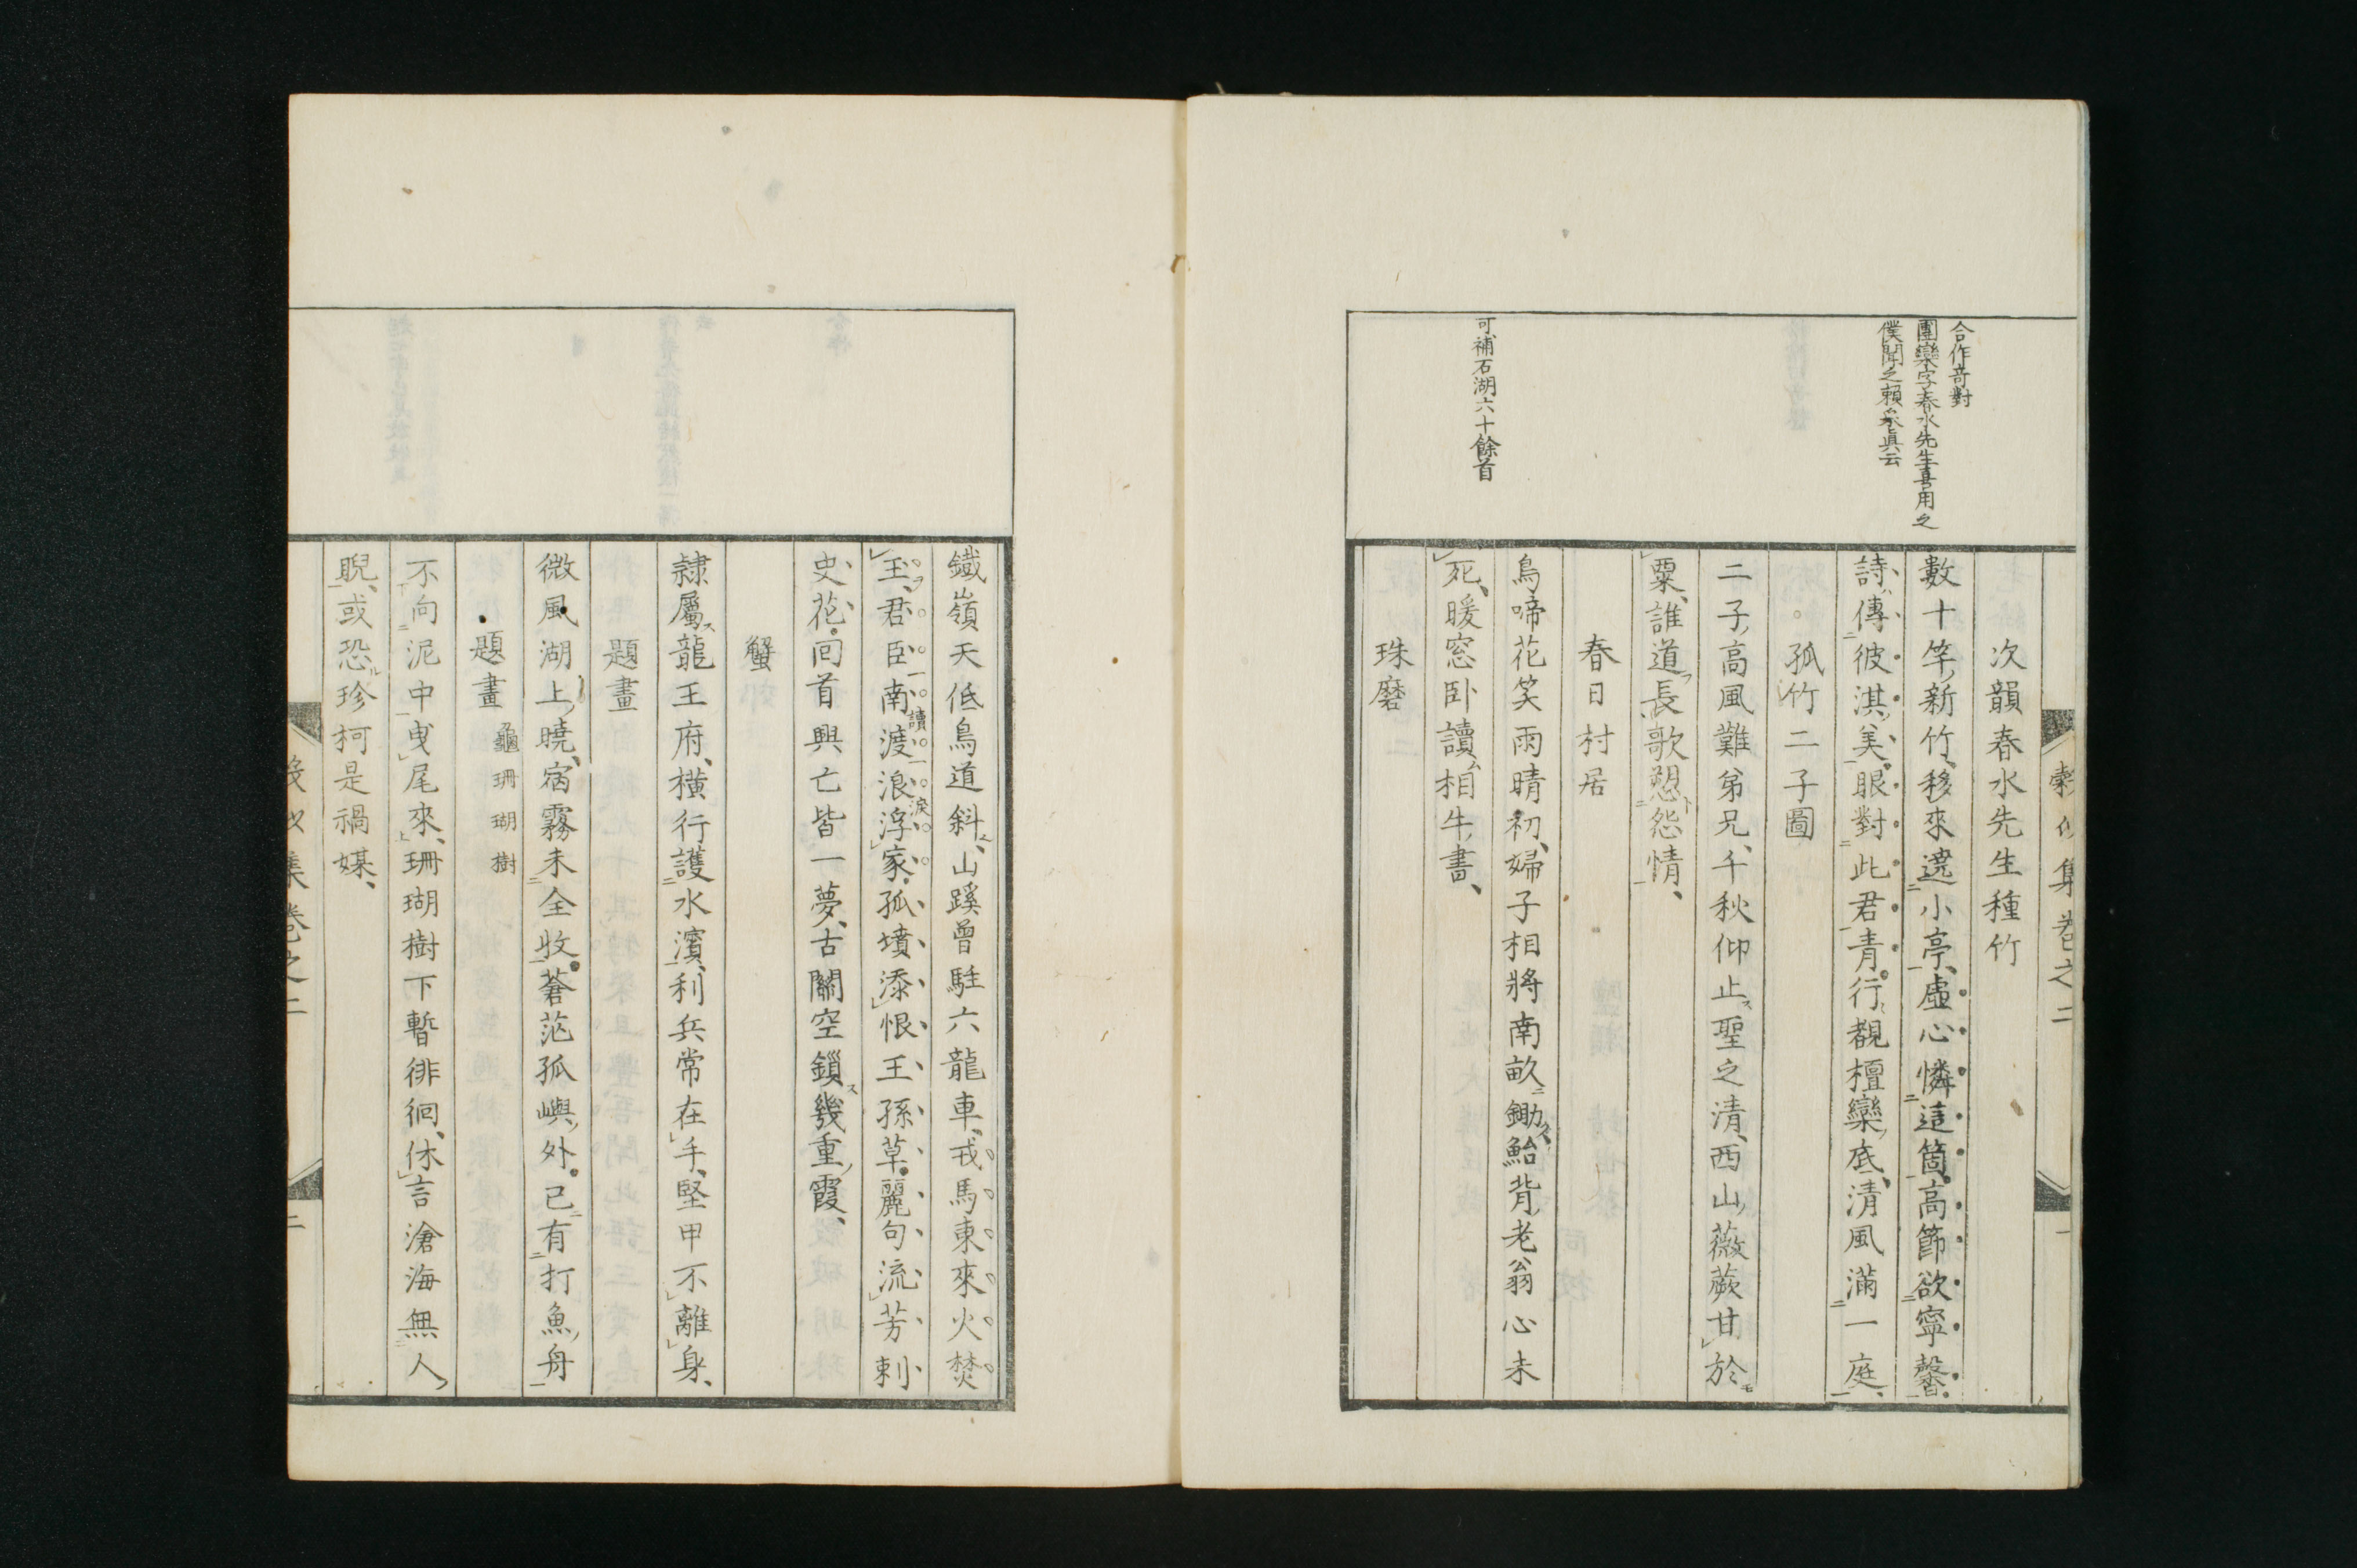 合作奇對
團欒字春水先生喜用之
僕聞之賴承真云
可補石湖六十餘首
集卷之二
一
次韻春水先生種竹
數十竿新竹移來遶小亭虛心憐這箇高節欲寧馨
詩傳彼淇美眼對此君青行覩檀欒底清風滿一庭
孤竹二子圖
二子高風難弟兄千秋仰止聖之清西山薇蕨甘於
粟誰道長歌怨情
春日村居
鳥啼花笑雨晴初婦子相將南畝鋤鮐背老翁心未
死暖窓卧讀相牛書
珠磨
鐵嶺天低鳥道斜山蹊曾駐六龍車戎馬東來火焚
玉君臣南渡浪浮家孤墳添恨王孫草麗句流芳剌
讀
淚
史花回首興亡皆一夢古關空鎖幾重霞
蟹
隷屬龍王府橫行護水濱利兵常在手堅甲不離身
題畫
微風湖上曉宿霧未全收蒼茫孤嶼外已有打魚舟
題畫 龜珊瑚樹
不向泥中曳尾來珊瑚樹下暫徘徊休言滄海無人
睨或恐珍柯是禍媒
集卷之二
二